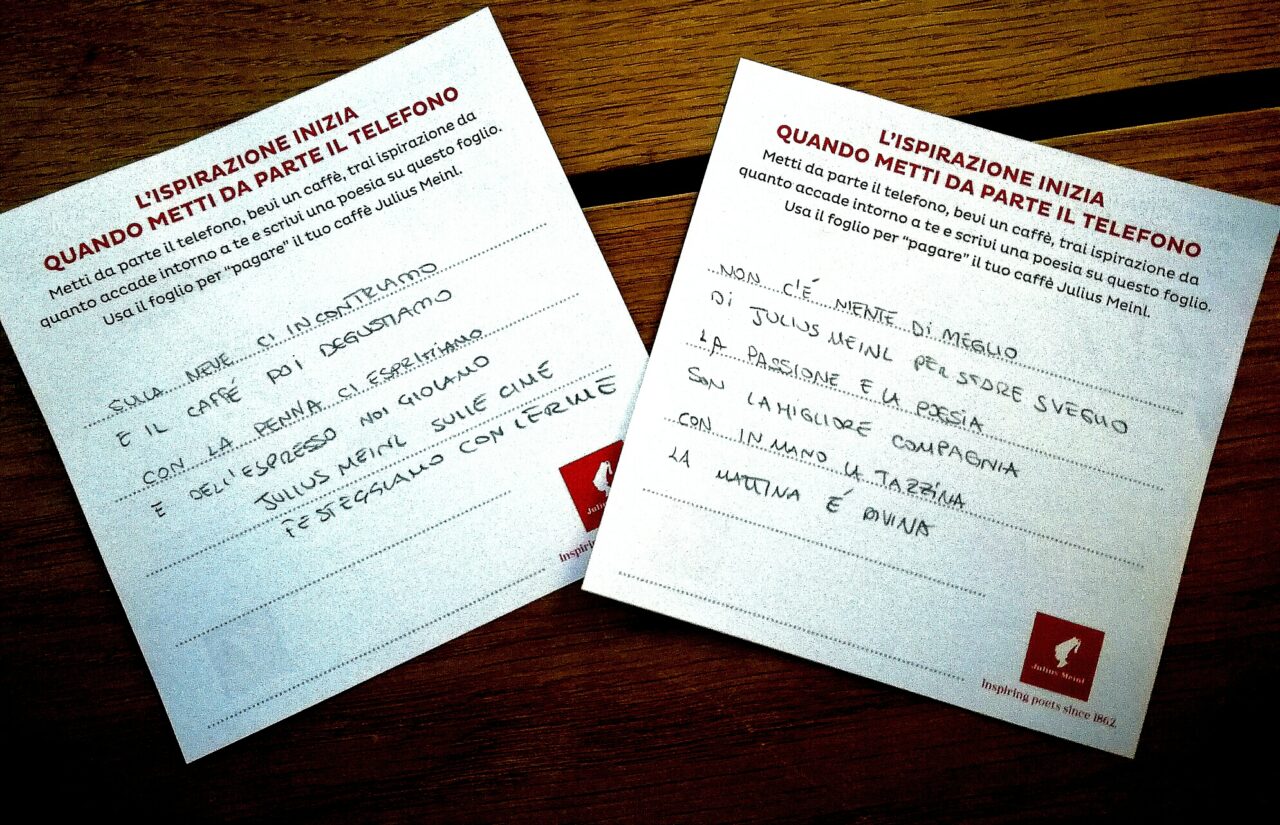 L'ISPIRAZIONE INIZIA
QUANDO METTI DA PARTE IL TELEFONO
Metti da parte il telefono, bevi un caffè, trai ispirazione da
quanto accade intorno a te e scrivi una poesia su questo foglio.
Usa il foglio per "pagare" il tuo caffè Julius Meinl.
SULLA NEVE CI INCONTRIAMO
E IL CAFFÉ POI DEGUSTIAMO
CON LA PENNA CI ESPRIMIAMO
E DELL'ESPRESSO NOI GIOIAMO
JULIUS MEINL SULLE CIME
FESTEGGIAMO CON LE RIME
Julius
Inspirin
L'ISPIRAZIONE INIZIA
QUANDO METTI DA PARTE IL TELEFONO
Metti da parte il telefono, bevi un caffè, trai ispirazione da
quanto accade intorno a te e scrivi una poesia su questo foglio.
Usa il foglio per "pagare" il tuo caffè Julius Meinl.
NON C'É NIENTE DI MEGLIO
DI JULIUS MEINL PER STARE SVEGLIO
LA PASSIONE E LA POESIA
SON LA MIGLIORE COMPAGNIA
CON IN MANO LA TAZZINA
LA MATTINA É DIVINA
Julius Meinl
Inspiring poets since 1862